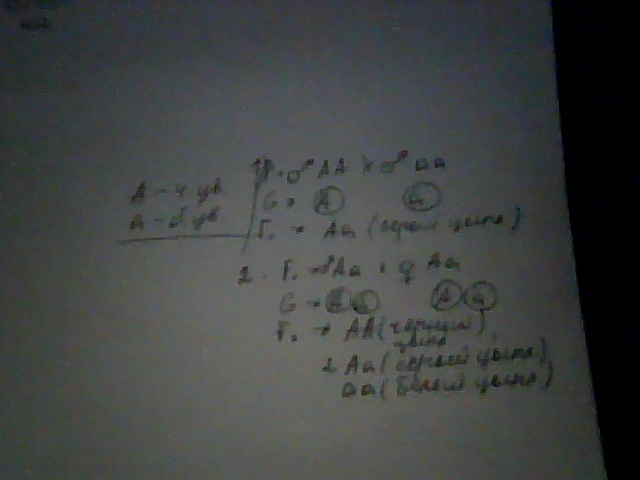 А - ч цв
а - б цв
1. P. ♂ АА × ♂ аа
G → А а
F₁ → Аа (серый цыпл)
2. F₁ → ♂Аа × ♀ Аа
G → А а А а
F₂ → АА (черный)
цыпл
2 Аа (серый цыпл)
аа (белый цыпл)